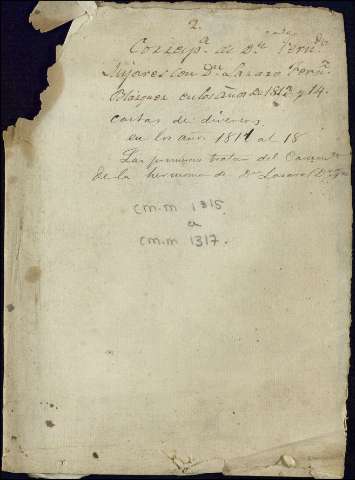 2.
Corresp.a de Dn. Fern.do
Mijares con Dn. Lazaro Fern.z
Blazquez en los años de 1812 y 14.
cartas de diversos
en los años 1811 al 18
Las primeras tratan del
de la hermana de Dn. Lazaro
cm.m 1315
a
cm.m 1317.